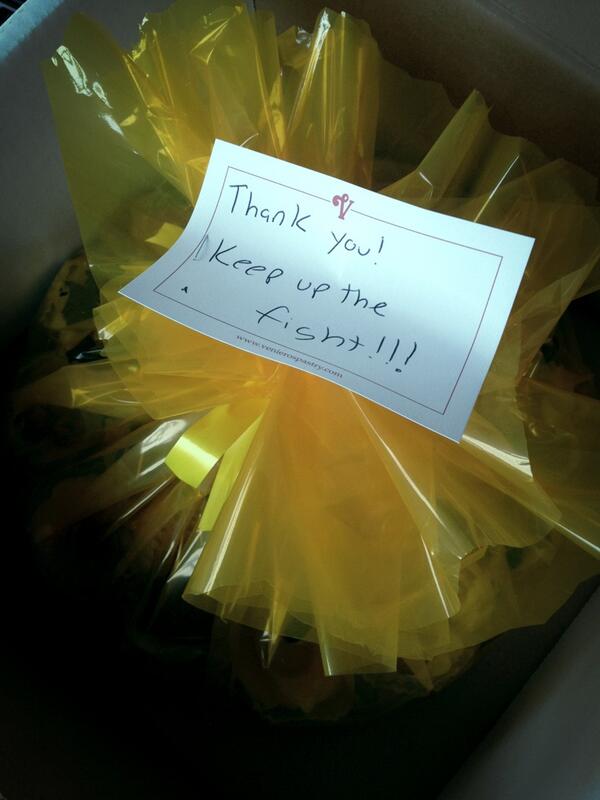 V
Thank you!
Keep up the
fight!!!
www.venierospastry.com